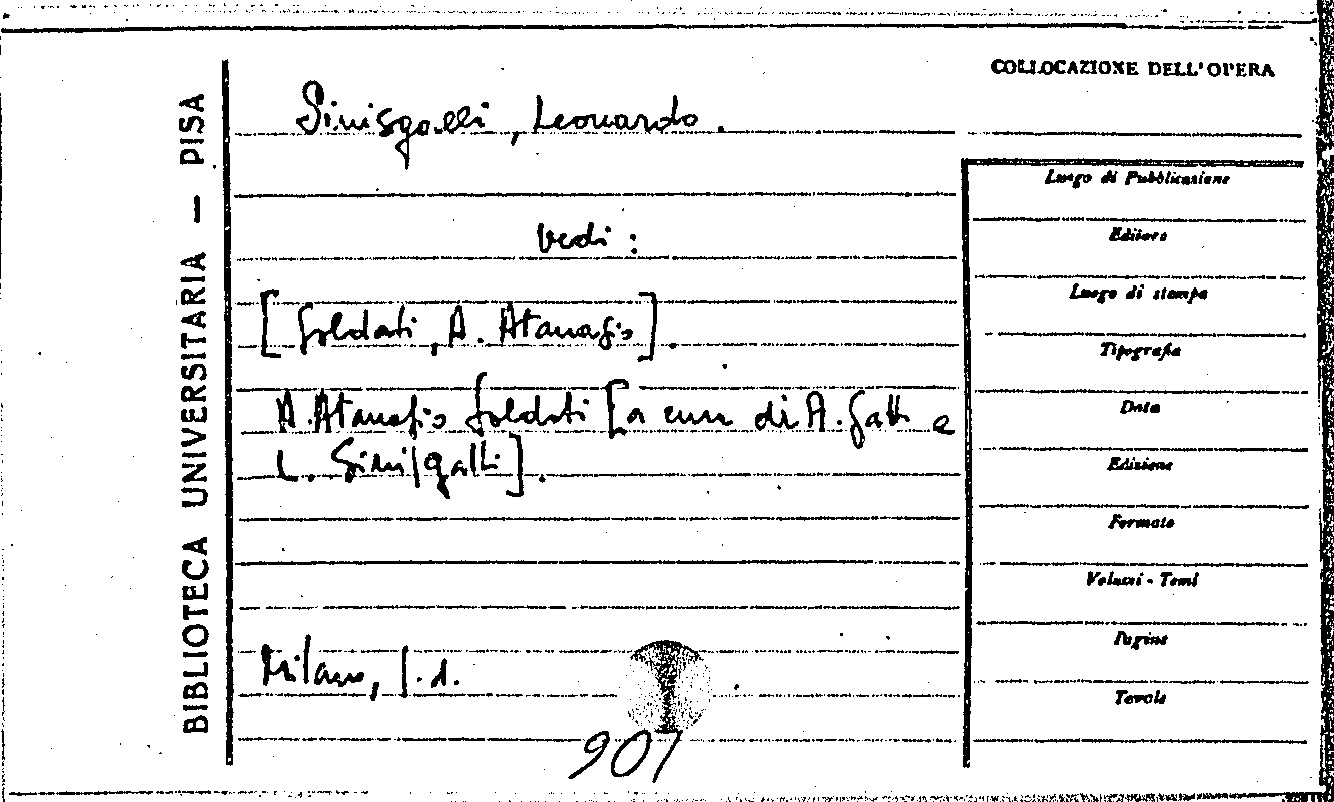 BIBLIOTECA UNIVERSITARIA — PISA
COLLOCAZIONE DELL'OPERA
Sinisgalli, Leonardo.
Vedi:
[Soldati, A. Atanasio].
A. Atanasio Soldati [a cura di A. Gatti e
L. Sinisgalli].
Milano, s.d.
901
Luogo di Pubblicazione
Editore
Luogo di stampa
Tipografia
Data
Edizione
Formato
Volumi - Tomi
Pagine
Tavole